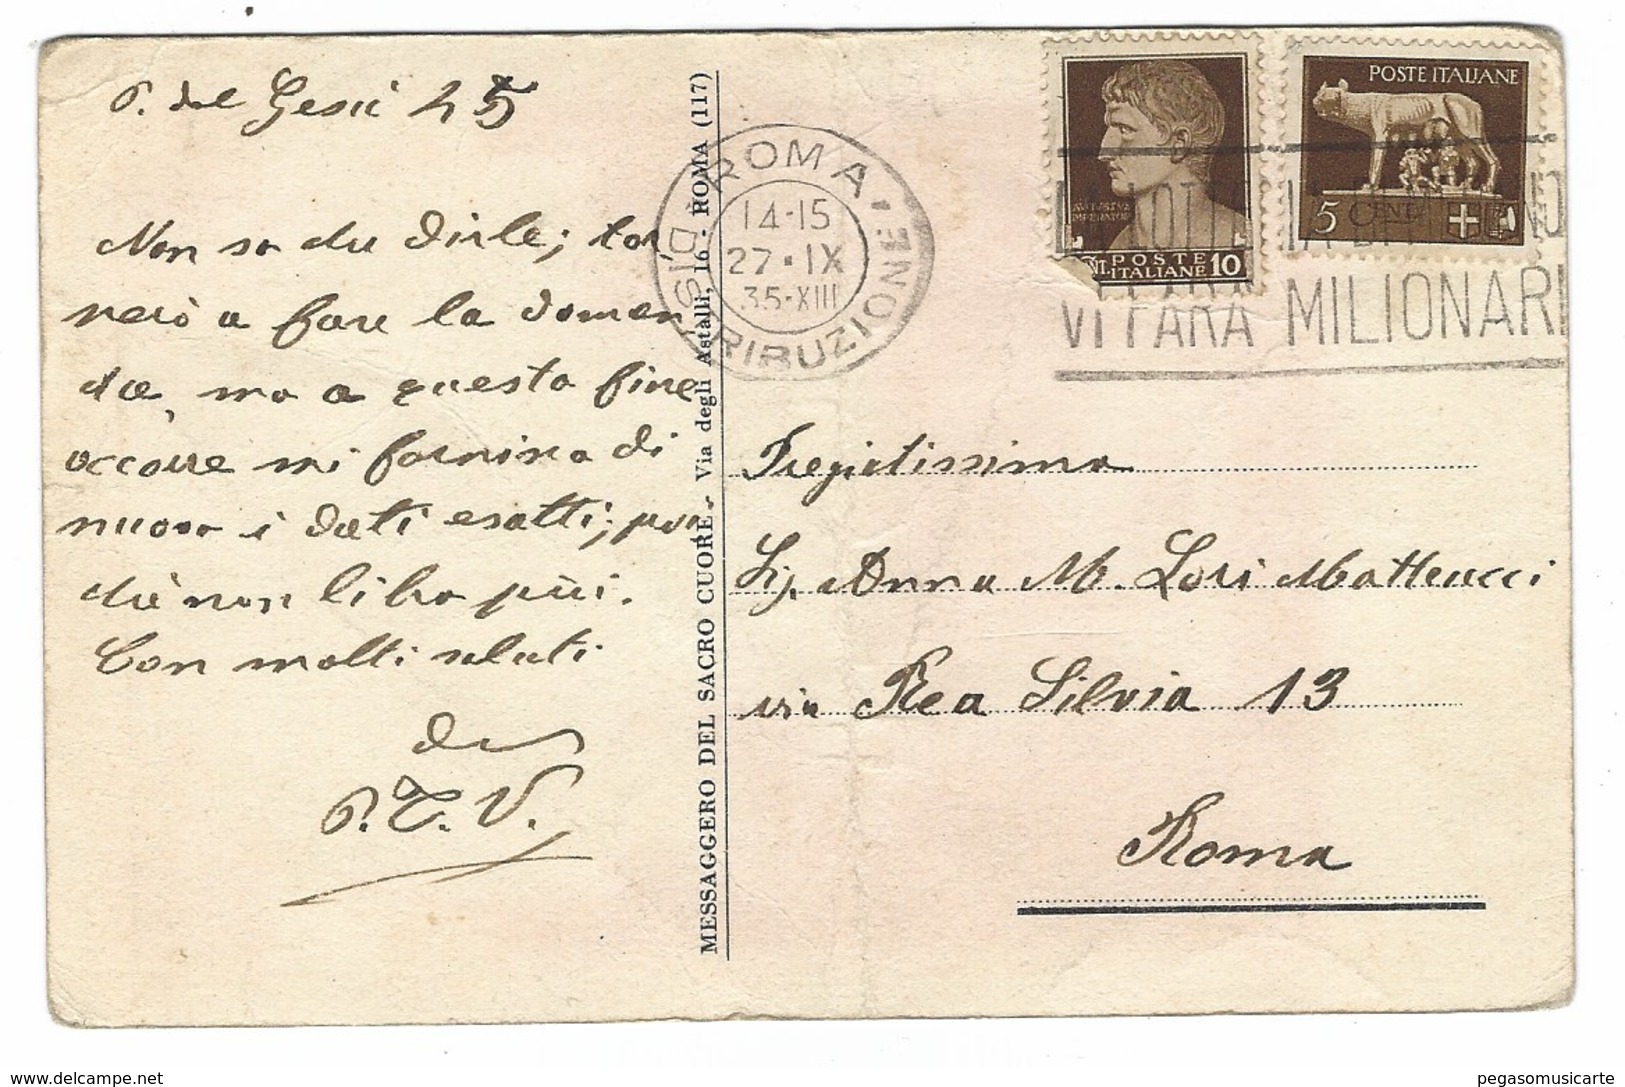 P. del Gesù 45
Non so che dirle; tor
nerò a fare la doman
da, ma a questo fine
occorre mi fornisca di
nuovo i dati esatti; poi
chè non li ho più.
Con molti saluti
P. T. V.
MESSAGGERO DEL SACRO CUORE - Via degli Astalli, 16 - ROMA (117)
ROMA
DISTRIBUZIONE
14-15
27·IX
35-XIII
VI FARÀ MILIONARI
AVGVSTVS
IMPERATOR
POSTE
ITALIANE 10
POSTE ITALIANE
5 CENT.
Pregiatissima
Sig. Anna M. Lori Matteucci
via Rea Silvia 13
Roma
www.delcampe.net
pegasomusicarte